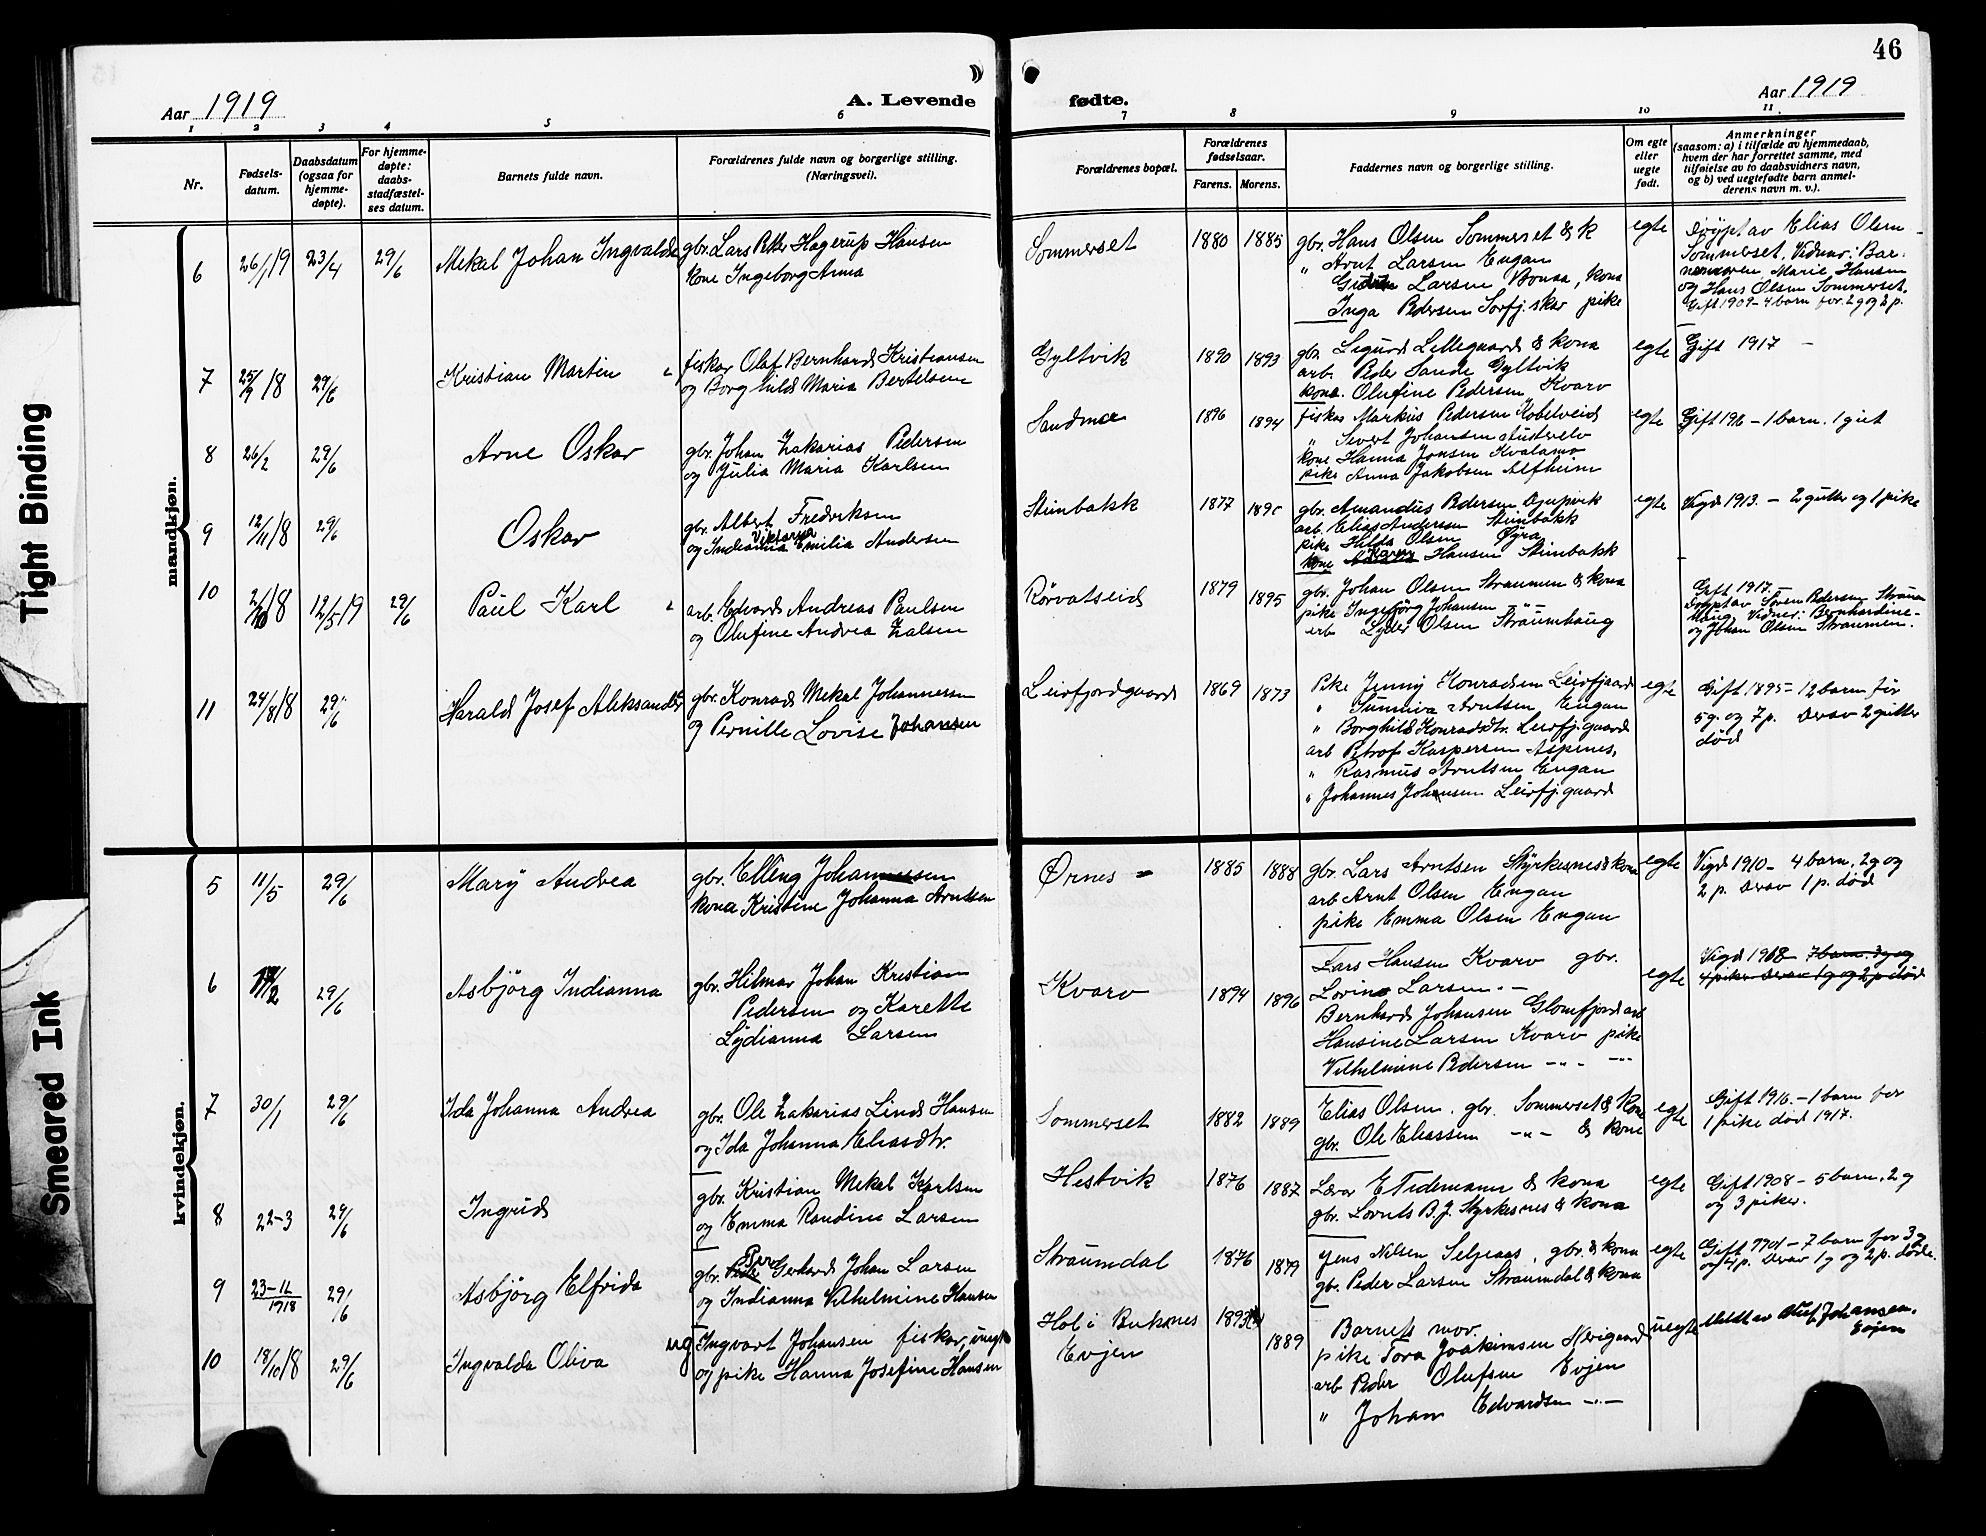 46
Aar 1919
A. Levende fødte.
Aar 1919
1 2 3 4 5 6 7 8 9 10 11
Nr.
Fødsels-
datum.
Daabsdatum
(ogsaa for
hjemme-
døpte).
For hjemme-
døpte:
daabs-
stadfæstel-
ses datum.
Barnets fulde navn.
Forældrenes fulde navn og borgerlige stilling.
(Næringsvei).
Forældrenes bopæl.
Forældrenes
fødselsaar.
Farens. Morens.
Faddernes navn og borgerlige stilling.
Om egte
eller
uegte
født.
Anmerkninger
(saasom: a) i tilfælde av hjemmedaab,
hvem der har forrettet samme, med
tilføielse av to daabsvidners navn,
og b) ved uegtefødte barn anmel-
derens navn m. v.).
mandkjøn.
6 26/1 19 23/4 29/6 Mekal Johan Ingvald
gbr. Lars Peter Hagerup Hansen
kone Ingeborg Anna
Sommerset 1880 1885
gbr. Hans Olsen Sommerset & k
" Arnt Larsen Engan
Larsen Bonaa, kona
Inga Pedersen Sørfj.skar pike
egte
Döypt av Elias Olsen
Sommerset. Vidner: Bar-
Marie Hansen
og Hans Olsen Sommerset.
Gift 1909 - 4 barn før 2 g og 2 p.
7 25/9 18 29/6 Kristian Martin
fisker Olaf Bernhard Kristiansen
og Borghild Maria Bertelsen
Gyltvik 1890 1893
gbr. Sigurd Lillegaard & kona
arb. Peder Sande Gyltvik
kona. Olufine Pedersen Kvarv
egte Gift 1917 -
8 26/2 29/6 Arne Oskar
gbr. Johan Zakarias Pedersen
og Julia Maria Karlsen
Sandmo 1896 1894
fisker Markus Pedersen Kobelveid
" Sivert Johansen Austerelv
kone Hanna Jonsen Kvalamo
pike Anna Jakobsen Alfheim
egte Gift 1916 - 1 barn. 1 gut
9 12/11 18 29/6 Oskar
gbr. Albert Fredriksen
Viktoria
og Indianna Emilia Andersen
Steinbakk 1877
gbr. Amandus Pedersen Djupvik
arb. Elias Andersen Steinbakk
pike Hilda Olsen Øyra
kone Hansen Steinbakk
egte Vigd 1913. - 2 gutter og 1 pike
10 2/10 18 12/5 19 29/6 Paul Karl
arb. Edvard Andreas Paulsen
og Olufine Andrea Zalsen
Rörvatseid 1879 1895
gbr. Johan Olsen Straumen & kona
pike Ingebjörg Johansen - " -
arb Peder Olsen Straumhaug
Gift 1917.
Döypt av Sören Pedersen Straum-
haug, Vidner: Bernhardine
og Johan Olsen Straumen.
11 24/8 18 29/6 Harald Josef Aleksander
gbr. Konrad Mekal Johannessen
og Pernille Lovise Johansen
Leirfjordgaard 1869 1873
Pike Jenny Konradsen Leirfjgaard
" Sunniva Arntsen Engan
" Borghild Konradsdtr. Leirfj.gaard
arb Petrof Kaspersen Aspenes,
" Rasmus Arntsen Engan
" Johannes Johansen Leirfj.gaard
egte
Gift 1895 - 12 barn før
5 g. og 7 p. Derav 2 gutter
død
kvindekjøn.
5 11/5 29/6 Mary Andrea
gbr. Elling Johannessen
kona Kristine Johanna Arntsen
Ørnes - 1885 1888
gbr. Lars Arntsen Styrkesnes & kona
arb Arnt Olsen Engan
pike Emma Olsen Engan
egte
Vigd 1910 - 4 barn, 2 g og
2 p. Derav 1 p. död
6 29/6 Asbjörg Indianna
gbr. Hilmar Johan Kristian
Pedersen og Karette
Lydianna Larsen
Kvarv 1894 1896
Lars Hansen Kvarv gbr.
Lovine Larsen - " -
Bernhard Johansen Glomfjord arb
Hansine Larsen Kvarv pike
Vilhelmine Pedersen - " - - " -
egte
Vigd 1918 7 barn. 3 g og
4 piker derav 1 g og 2 p død
7 30/1 29/6 Ida Johanna Andrea
gbr. Ole Zakarias Lind Hansen
og Ida Johanna Eliasdtr.
Sommerset 1882 1889
Elias Olsen. gbr. Sommerset & Kone
gbr. Ole Eliassen - " - & kone
egte
Gift 1916. - 1 barn før
1 pike död 1917.
8 22-3 29/6 Ingrid
gbr. Kristian Mekal Karlsen
og Emma Randine Larsen
Hestvik 1876 1887
Lærer E Tidemann & kona
gbr. Lornts B. J. Styrkesnes & kona
egte
Gift 1908 - 5 barn. 2 g
og 3 piker.
9 23-12 1918 29/6 Asbjörg Elfrida
gbr. Gerhard Johan Larsen
og Indianna Vilhelmine Hansen
Straumdal 1876 1879
Jens Nilsen Seljeaas, gbr. & kona
gbr. Peder Larsen Straumdal & kona
egte
Gift 1901 - 7 barn før 3 g
og 4 p. Derav 1 g og 2 p. døde.
10 18/10 18 29/6 Ingvalda Oliva
ug Ingvart Johansen fisker, ungk
og pike Hanna Josefine Hansen
Hol i Buksnes
Evjen
1889
Barnets mor.
pike Tora Joakimsen Nerigaard
arb Peder Olufsen Evjen
" Johan Edvardsen - " -
uegte
Meldt av Oluf Johansen,
Evjen
Tight Binding
Smeared Ink